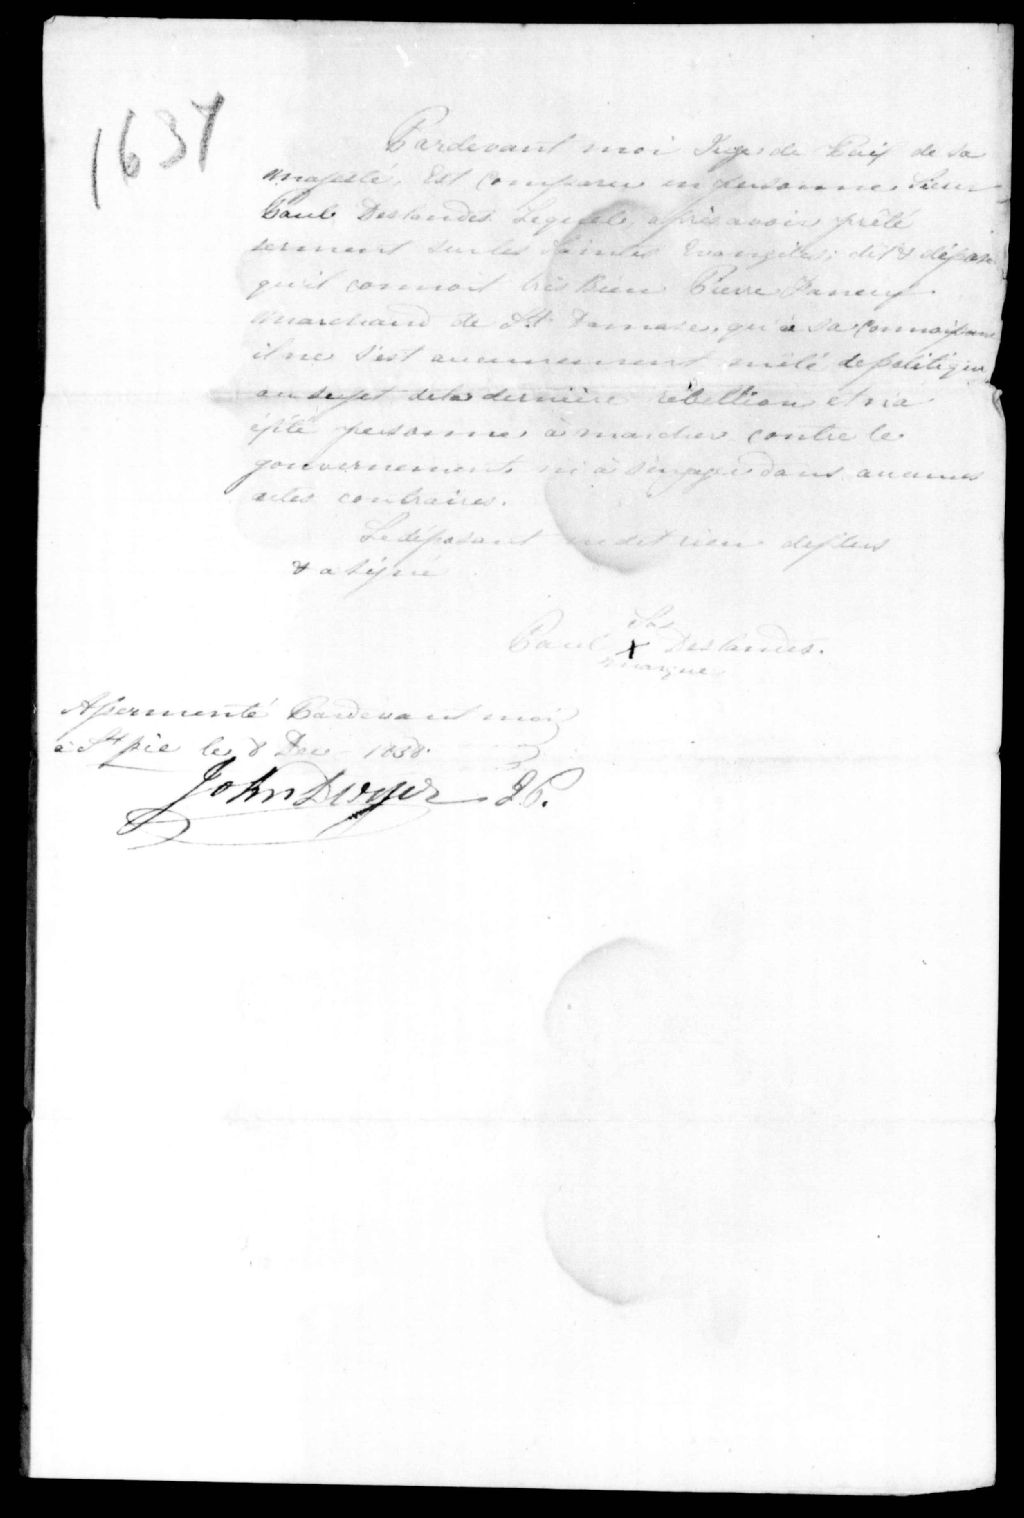 1637
Pardevant moi Juge de Paix de sa
Majesté, Est comparu en personne, Sieur
Paul Deslandes Lequel, après avoir prêté
serment sur les Saintes Evangiles; dit & dépose
qu'il connoit très bien Pierre
marchand de St Damase, qu'à sa connoissance
il ne s'est aucunement mêlé de politique
au sujet de la dernière rébellion et n'a
personne à marcher contre le
gouvernement, ni à s'engager dans aucunes
actes contraires.
Le déposant ne dit rien de plus
& a signé
Sa
Paul X Deslandes.
marque
Assermenté Pardevant moi
à St pie le 8 Dec - 1838.
John Dwyer J.P.